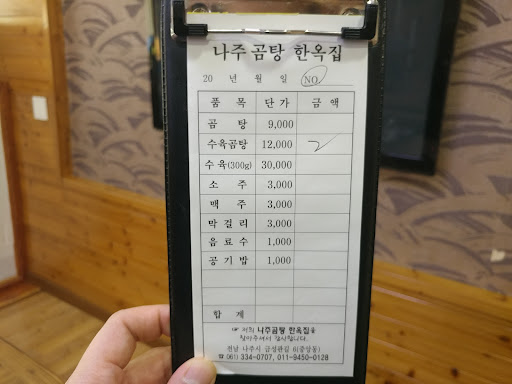 나주곰탕 한옥집
20 년 월 일 NO.
품 목 단 가 금 액
곰 탕 9,000
수육곰탕 12,000 2
수 육(300g) 30,000
소 주 3,000
맥 주 3,000
막 걸 리 3,000
음 료 수 1,000
공 기 밥 1,000
합 계
☞ 저희 나주곰탕 한옥집을
찾아주셔서 감사합니다.
전남 나주시 금성관길 6(중앙동)
☎ (061) 334-0707, 011-9450-0128